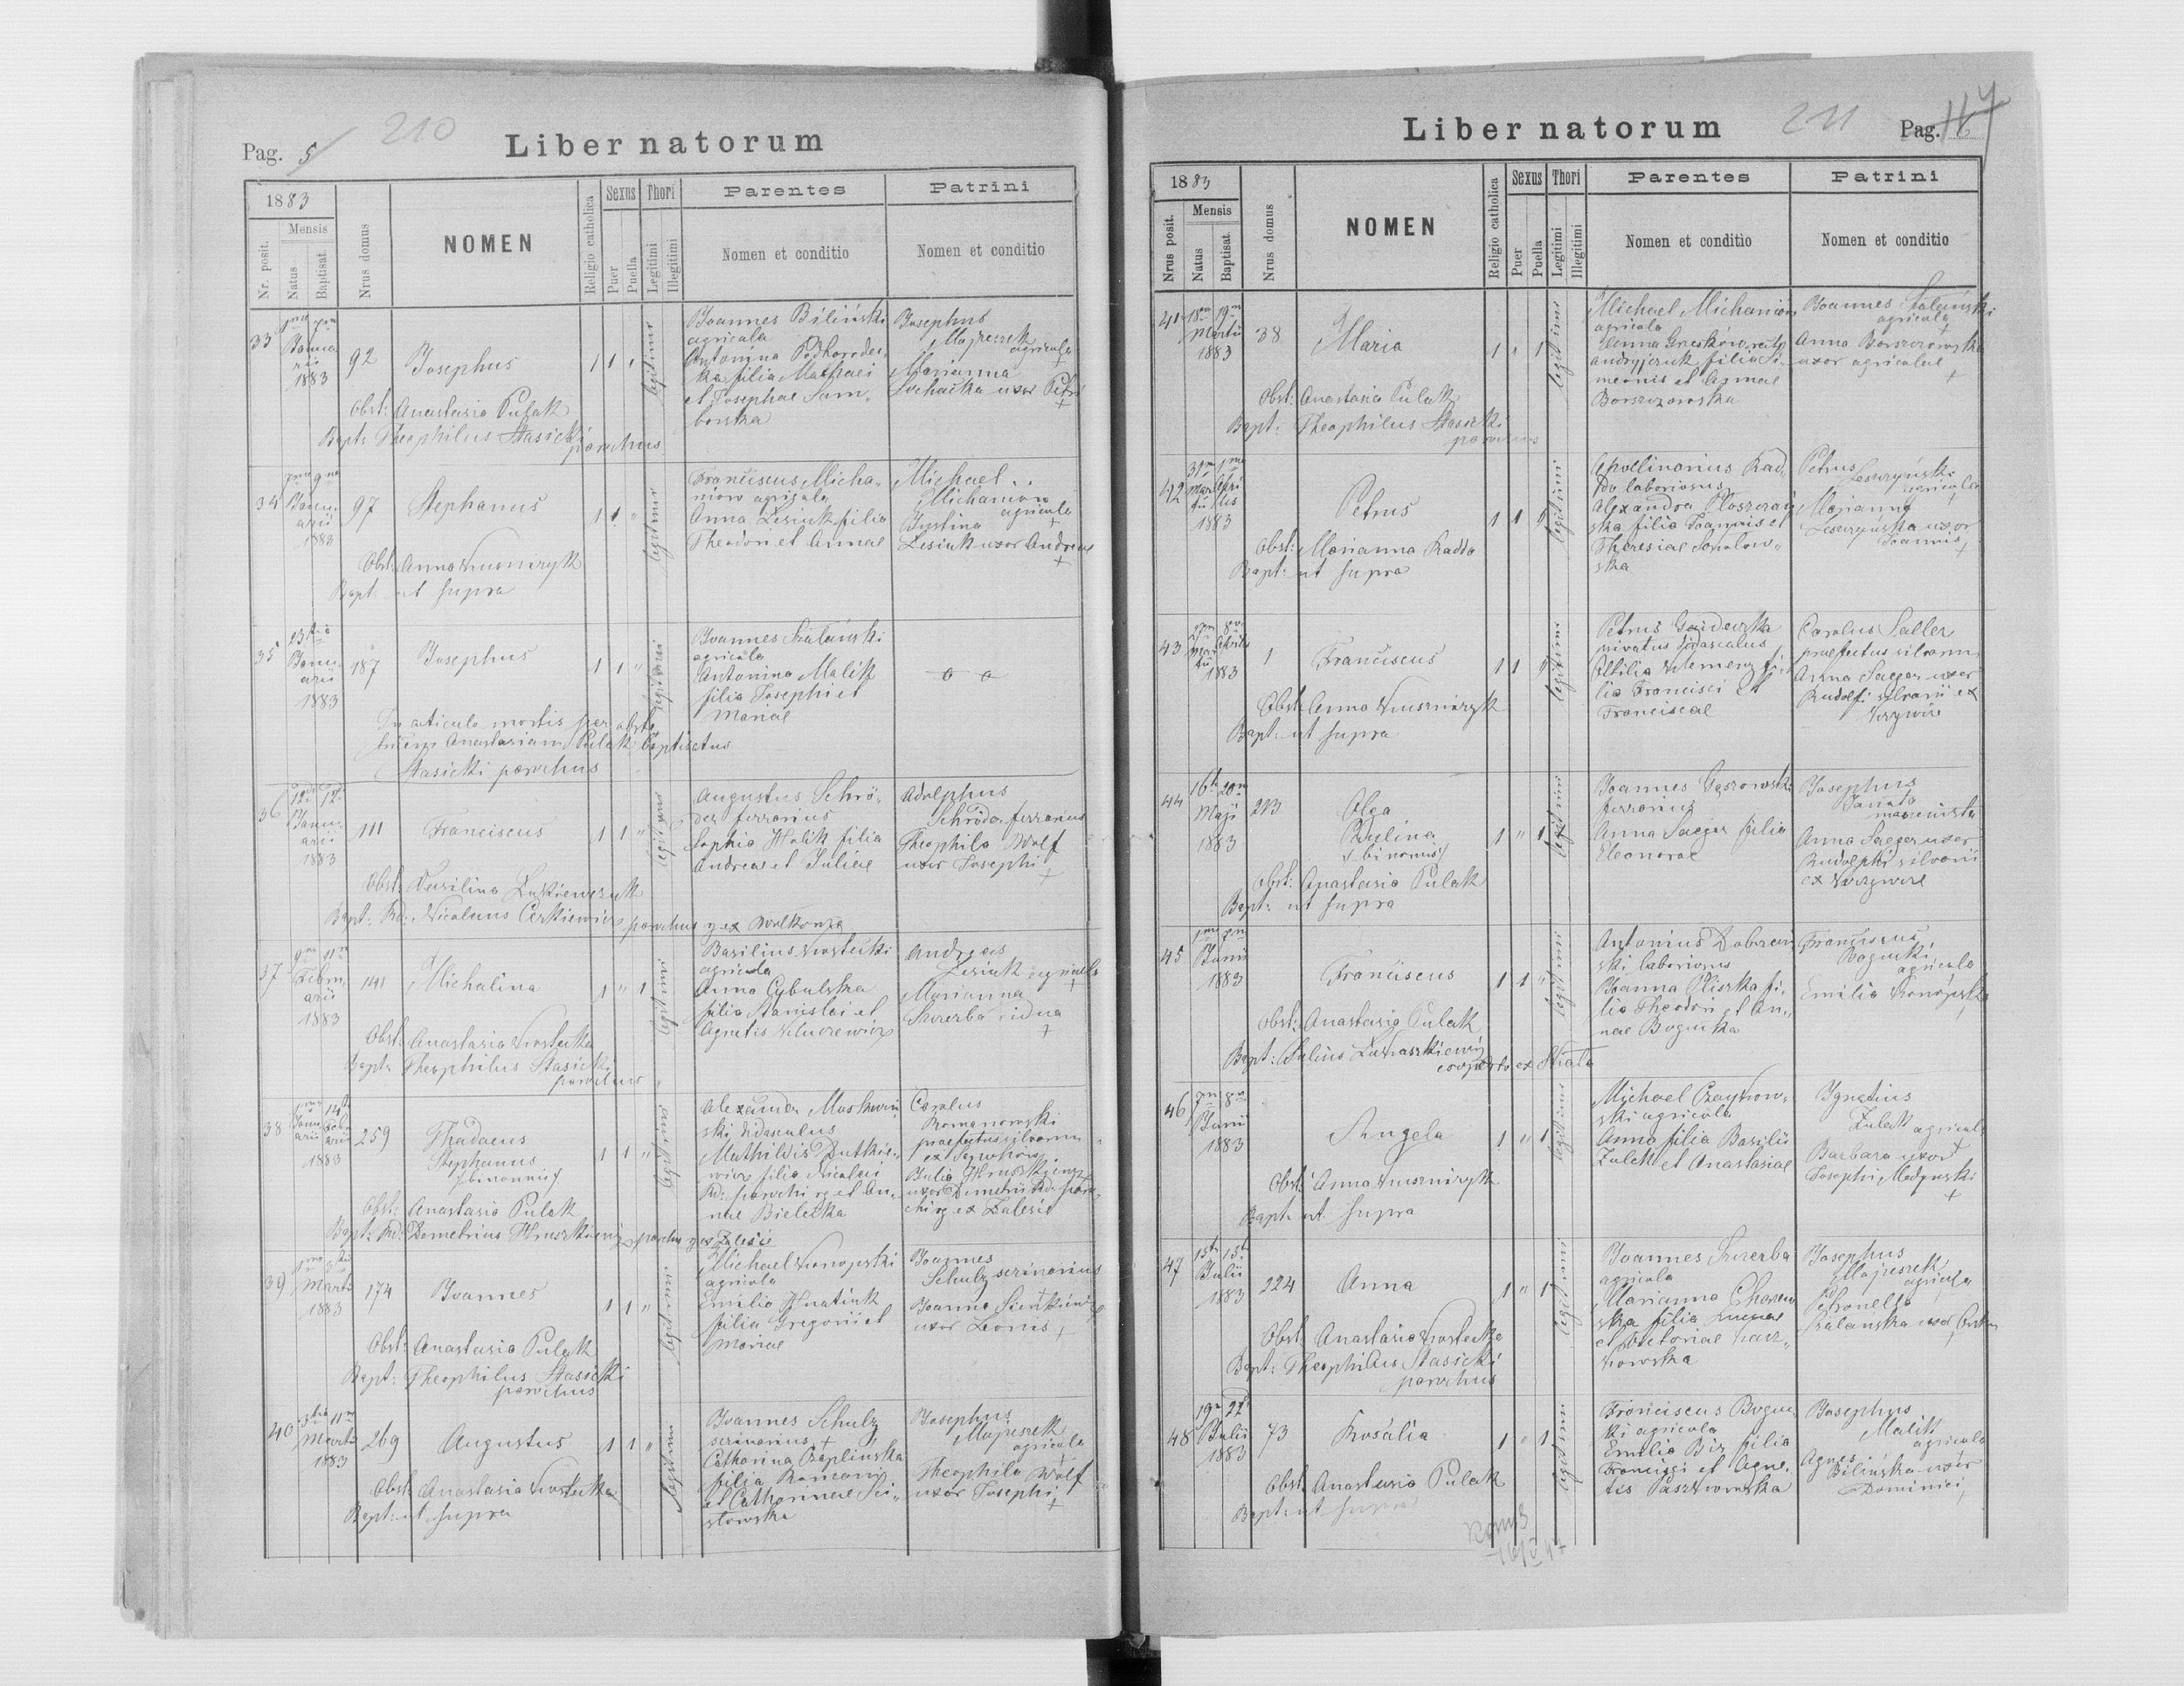 210
Pag. 5
Liber natorum
1883
Nr. posit.
Mensis
Natus
Baptisat.
Nrus domus
NOMEN
Religio catholica
Sexus
Puer
Puella
Thori
Legitimi
Illegitimi
Parentes
Nomen et conditio
Patrini
Nomen et conditio
33
1ma 7ma
Janua
rii
1883
92
Josephus
1 1 "
legitimi
Joannes Biliński
agricola
Antonina Podhorodec
ka filia Mathaei
et Josephae Sam
borska
Josephus
Majreszek
agricola
Marianna
Sochacka uxor Petri
+
Obst: Anastasia Pulak
Bapt: Theophilus Stasicki
parochus
34
7ma 9na
Janu
arii
1883
97
Stephanus
1 1 "
legitimi
Franciscus Micha
niow agricola
Anna Lesiuk filia
Theodori et Annae
Michael
Michaniow
agricola
+
Justina
Lesiuk uxor Andreae
+
Obst: Anna
Bapt ut supra
35
23tia
Janu
arii
1883
187
Josephus
1 1 "
legitimi
Joannes Szalański
agricola
Antonina Malik
filia Josephi et
Mariae
In articulo mortis per obste
tricem Anastasiam Pulak baptisatus
Stasicki parochus
36
12 12
Janu
arii
1883
111
Franciscus
1 1 "
legitimi
Augustus Schrö
der ferrarius
Sophia Halik filia
Andreae et Juliae
Adolphus
Schröder ferrarius
Theophila Wolf
uxor Josephi
+
Obst: Vasilina
Bapt: Rd: Nicolaus Cerkiewicz parochus g ex Wolkowce
37
9na 11ma
Febru
arii
1883
141
Michalina
1 " 1
legitimi
Basilius Kostecki
agricola
Anna Cybulska
filia Stanislai et
Agnetis Kluczewicz
Andreas
Lesiuk agricola
+
Marianna
Szczerba vidua
+
Obst: Anastasia Kostecka
Bapt: Theophilus Stasicki
parochus
38
1ma 14
Janu Febru
arii arii
1883
259
Thadaeus
Stephanus
/binomius/
1 1 "
legitimi
Alexander Moskwiń
ski didascalus
Mathildis Dutkie
wicz filia Nicolai
Rd: parochi rg et An
nae Bielecka
Carolus
Romanowski
praefectus silvarum
ex
Julia Hruszkiewicz
uxor Demetrii Rd. paro
chi rg ex Zalesie
Obst: Anastasia Pulak
Bapt: Rd: Demetrius Hruszkiewicz parochus g ex Zalesie
39
1ma 3tia
Martii
1883
174
Joannes
1 1 "
legitimi
Michael Konopski
agricola
Emilia Hnatiuk
filia Gregorii et
Mariae
Joannes
Schulz scrinarius
Joanna Sienkiewicz
uxor Leonis
+
Obst: Anastasia Pulak
Bapt: Theophilus Stasicki
parochus
40
3tia 11ma
Martii
1883
269
Augustus
1 1 "
legitimi
Joannes Schulz
scrinarius +
Catharina Czaplińska
filia Romani
et Catharinae Sci
słowska
Josephus
Majreszek
agricola
+
Theophila Wolf
uxor Josephi
+
Obst: Anastasia Kostecka
Bapt: ut supra
Liber natorum
211
Pag. 6
1883
Nrus posit.
Mensis
Natus
Baptisat.
Nrus domus
NOMEN
Religio catholica
Sexus
Puer
Puella
Thori
Legitimi
Illegitimi
Parentes
Nomen et conditio
Patrini
Nomen et conditio
41
18va 19na
Martii
1883
38
Maria
1 " 1
legitimi
Michael Michaniow
agricola
Anna Greskow recte
Andryjczuk filia Si
meonis et Agnae
Borszczowska
Joannes Szalański
agricola
+
Anna Borszczowska
uxor agricolae
+
Obst: Anastasia Pulak
Bapt: Theophilus Stasicki
parochus
42
31ma 1ma
Mar Apri
tii lis
1883
Petrus
1 1 "
legitimi
Apollinarius Rad
do laboriosus
Alexandra
ska filia Joannis et
Theresiae Sokolow
ska
Petrus
Leszczyński
agricola
+
Marianna
Leszczyńska uxor
Joannis
+
Obst: Marianna Raddo
Bapt: ut supra
43
Mar Aprilis
tii
1883
1
Franciscus
1 1 "
legitimi
Petrus
privatus didascalus
Ottilia Klemenz fi
lia Francisci et
Franciscae
Carolus Saller
praefectus silvarum
Anna Saeger uxor
Rudolfi silvarii ex
Obst: Anna
Bapt: ut supra
44
16ta 20ma
Maji
1883
213
Olga
Paulina
/binomius/
1 " 1
legitimi
Joannes Gąsrowski
ferrarius
Anna Saeger filia
Eleonorae
Josephus
Janata
machinista
Anna Saeger uxor
Rudolphi silvarii
ex
Obst: Anastasia Pulak
Bapt: ut supra
45
1ma
Junii
1883
Franciscus
1 1 "
legitimi
Antonius Dobrzań
ski laboriosus
Joanna Pliszka fi
lia Theodori et An
nae Bogucka
Franciscus
Bogucki
agricola
Emilia Konopska
+
Obst: Anastasia Pulak
Bapt: Julius Łukaszkiewicz
cooperator ex Skała
46
7ma 8va
Junii
1883
Angela
1 " 1
legitimi
Michael Czaykow
ski agricola
Anna filia Basilii
Zulak et Anastasiae
Ignatius
Zulak agricola
+
Barbara uxor
Josephi Medynski
+
Obst: Anna
Bapt: ut supra
47
13tia 15ta
Julii
1883
224
Anna
1 " 1
legitimi
Joannes Szczerba
agricola
Marianna
ska filia Lucae
et Victoriae
kowska
Josephus
Majreszek
agricola
+
Petronella
Szalanska uxor
Obst: Anastasia Kostecka
Bapt: Theophilus Stasicki
parochus
48
19na 22da
Julii
1883
73
Rosalia
1 " 1
legitimi
Franciscus Boguc
ki agricola
Emilia Biz filia
Francisci et Agne
tis Paszkowska
Josephus
Malik
agricola
+
Agnes
Bilińska uxor
Dominici
+
Obst: Anastasia Pulak
Bapt: ut supra